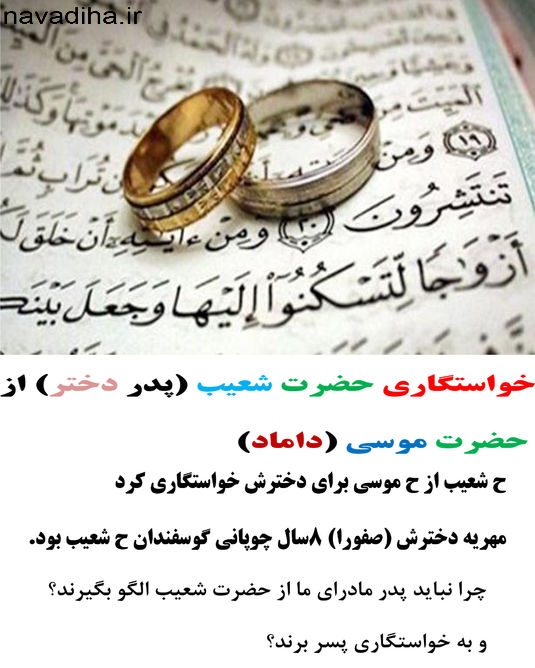 navadiha.ir
ٱلْمَيِّتَ مِنَ
١٩ وَمِنْ
تُرَابٍ ثُمَّ
تَنتَشِرُونَ ٢٠ وَمِنْ ءَايَٰتِهِۦٓ أَنْ خَلَقَ لَكُ
أَزْوَٰجًا لِّتَسْكُنُوٓا۟ إِلَيْهَا وَجَعَلَ بَيْنَكُ
خواستگاری حضرت شعیب (پدر دختر) از
حضرت موسی (داماد)
ح شعیب از ح موسی برای دخترش خواستگاری کرد
مهریه دخترش (صفورا) ۸سال چوپانی گوسفندان ح شعیب بود.
چرا نباید پدر مادرای ما از حضرت شعیب الگو بگیرند؟
و به خواستگاری پسر برند؟